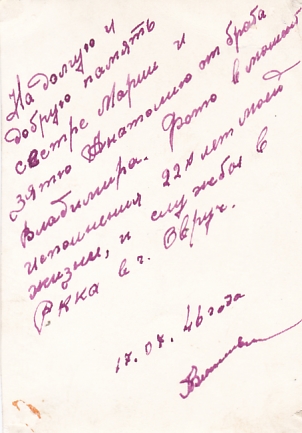 На долгую и
добрую память
сестре Марии и
зятю Анатолию от брата
Владимира. Фото в момент
исполнения 22х лет моей
жизни, и службы в
РККА в г. Овруч.
17.07.46 года